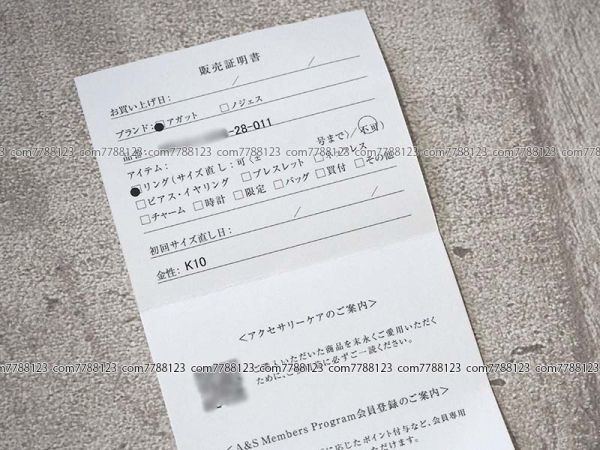 販売証明書
お買い上げ日: / /
ブランド: アガット □ノジェス
品番: -28-011
com7788123 com7788123 com7788123 com7788123 com7788123 com7788123
アイテム:
リング(サイズ直し:可(± 号まで)/不可)
□ピアス・イヤリング □ブレスレット □ネックレス
□チャーム □時計 □限定 □バッグ □買付 □その他
初回サイズ直し日: / /
金性: K10
<アクセサリーケアのご案内>
いただいた商品を末永くご愛用いただく
com7788123 com7788123 com7788123 com7788123 com7788123 com7788123
ために、 に必ずご一読ください。
<A&S Members Program会員登録のご案内>
に応じたポイント付与など、会員専用
ただけます。